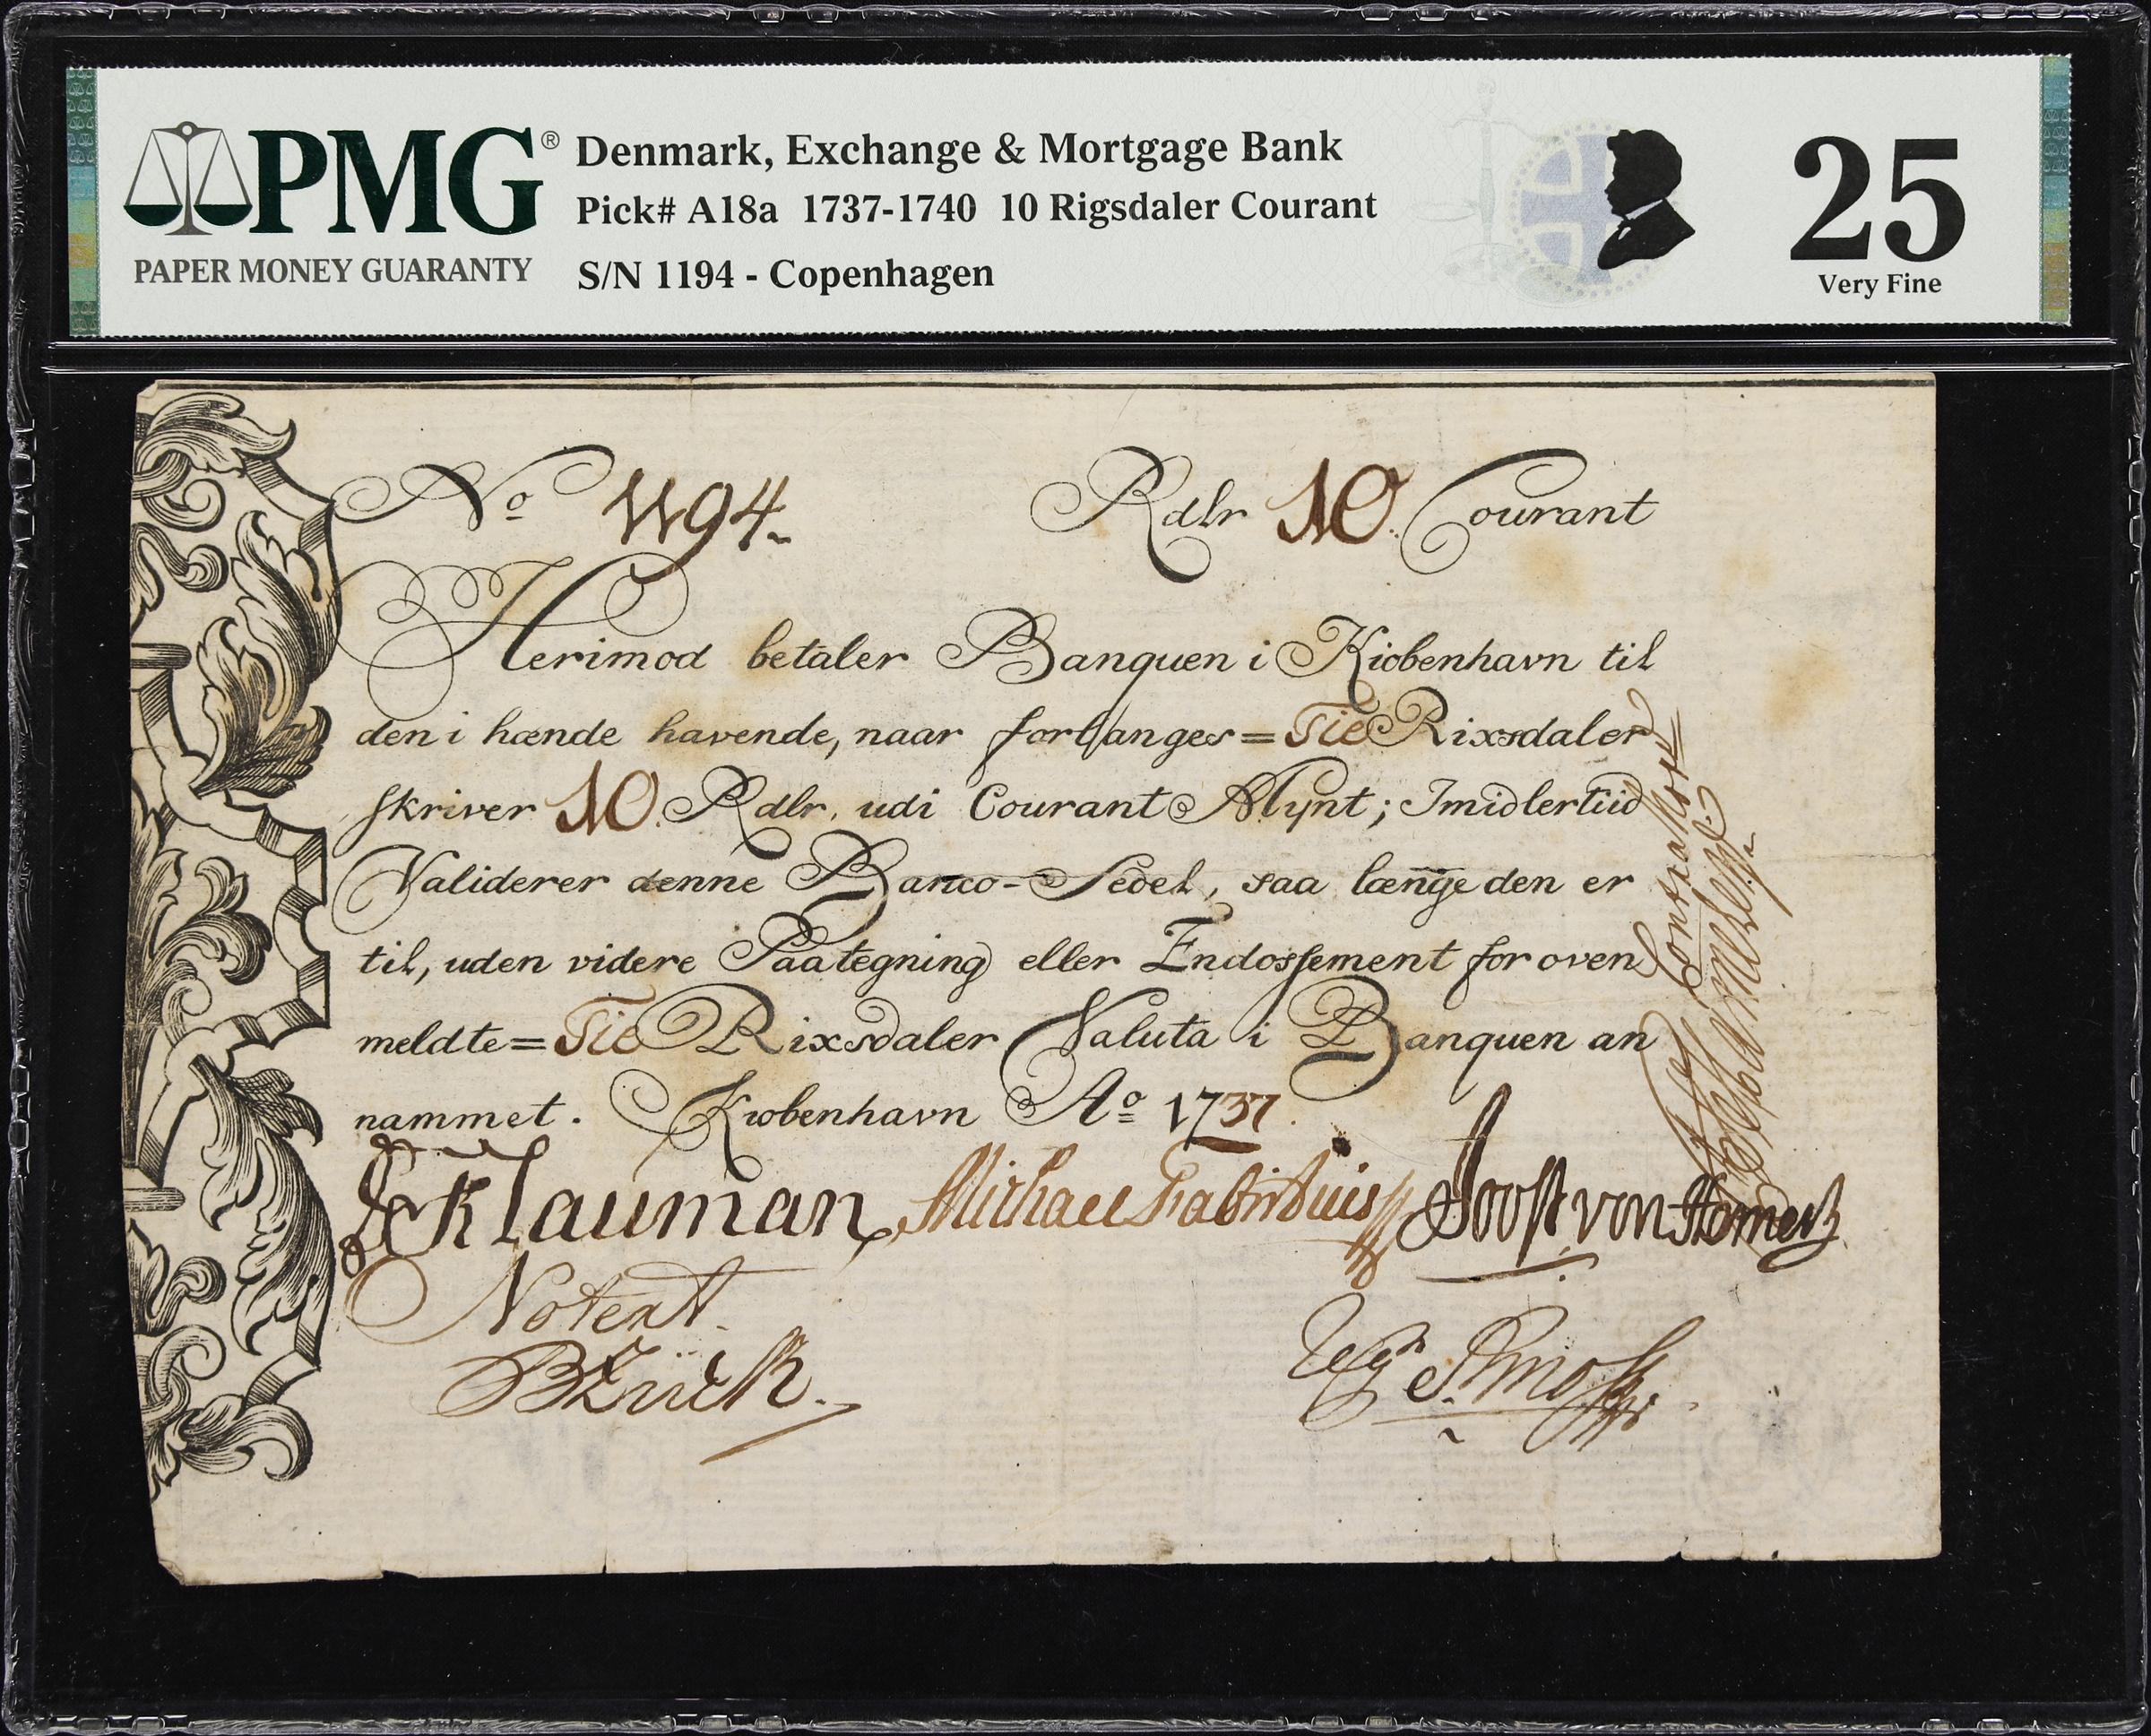 PMG®
PAPER MONEY GUARANTY
Denmark, Exchange & Mortgage Bank
Pick# A18a 1737-1740 10 Rigsdaler Courant
S/N 1194 - Copenhagen
25
Very Fine
No 1194
Rdlr 10. Courant
Herimod betaler Banquen i Kiobenhavn til
den i hænde havende, naar forlanges = Tie Rixsdaler
skriver 10. Rdlr. udi Courant Mynt; Imidlertiid
Validerer denne Banco-Sedel, saa længe den er
til, uden videre Paategning eller Endossement for oven
meldte = Tie Rixsdaler Valuta i Banquen an
nammet. Kiobenhavn Ao 1737.
Klauman Michael Fabritius Joost von Hemert
Notert.